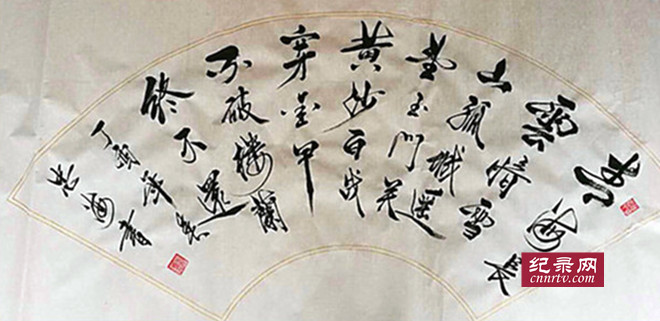 青海長
雲暗雪
山孤城遥
望玉門关
黄沙百战
穿金甲
不破楼蘭
终不還
丁酉年春
海書
纪录网
cnnrtv.com